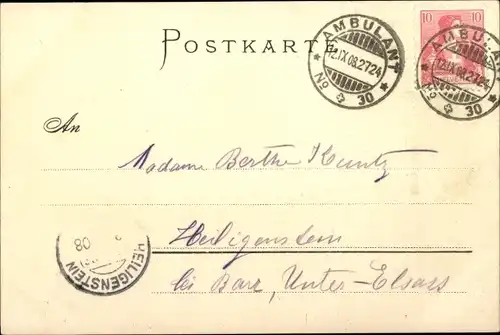 POSTKARTE
AMBULANT
12.IX.08.2724
No 30
10 10
AMBULANT
12.IX.08.2724
No 30
An
Madame Berthe Kuntz
Heiligenstein
bei Barr, Unter-Elsass
HEILIGENSTEIN
08